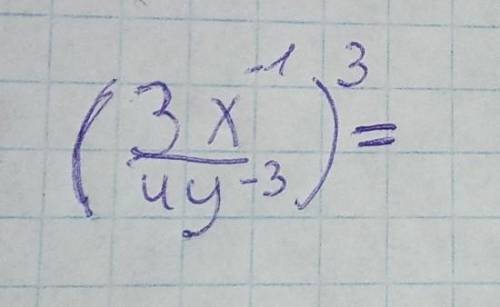 (3x⁻¹/4y⁻³)³=